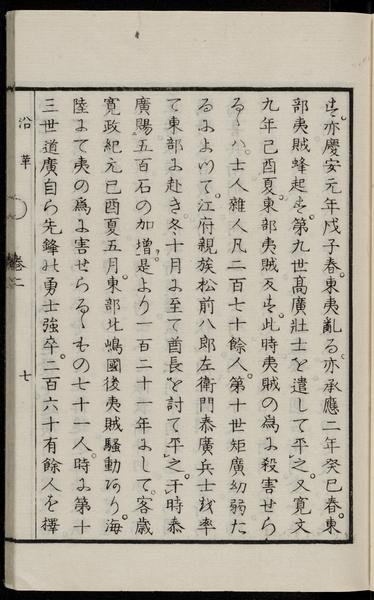 す。亦慶安元年戊子春。東夷亂る。亦承應二年癸巳春。東
部夷賊蜂起す。第九世高廣壯士を遣して平之。又寛文
九年己酉夏。東部夷賊反す。此時夷賊の爲に殺害せら
るゝハ。士人雜人凡二百七十餘人。第十世矩廣幼弱た
るによりて。江府親族松前八郎左衛門泰廣兵士を率
て東部に赴き。冬十月に至て酋長を討て平之。于時泰
廣賜五百石の加増。是より一百二十一年にして。客歳
寛政紀元己酉夏五月。東部北嶋國後夷賊騒動あり。海
陸にて夷の爲に害せらるゝもの七十一人。時に第十
三世道廣自ら先鋒の勇士強卒。二百六十有餘人を擇
沿革
卷二
七